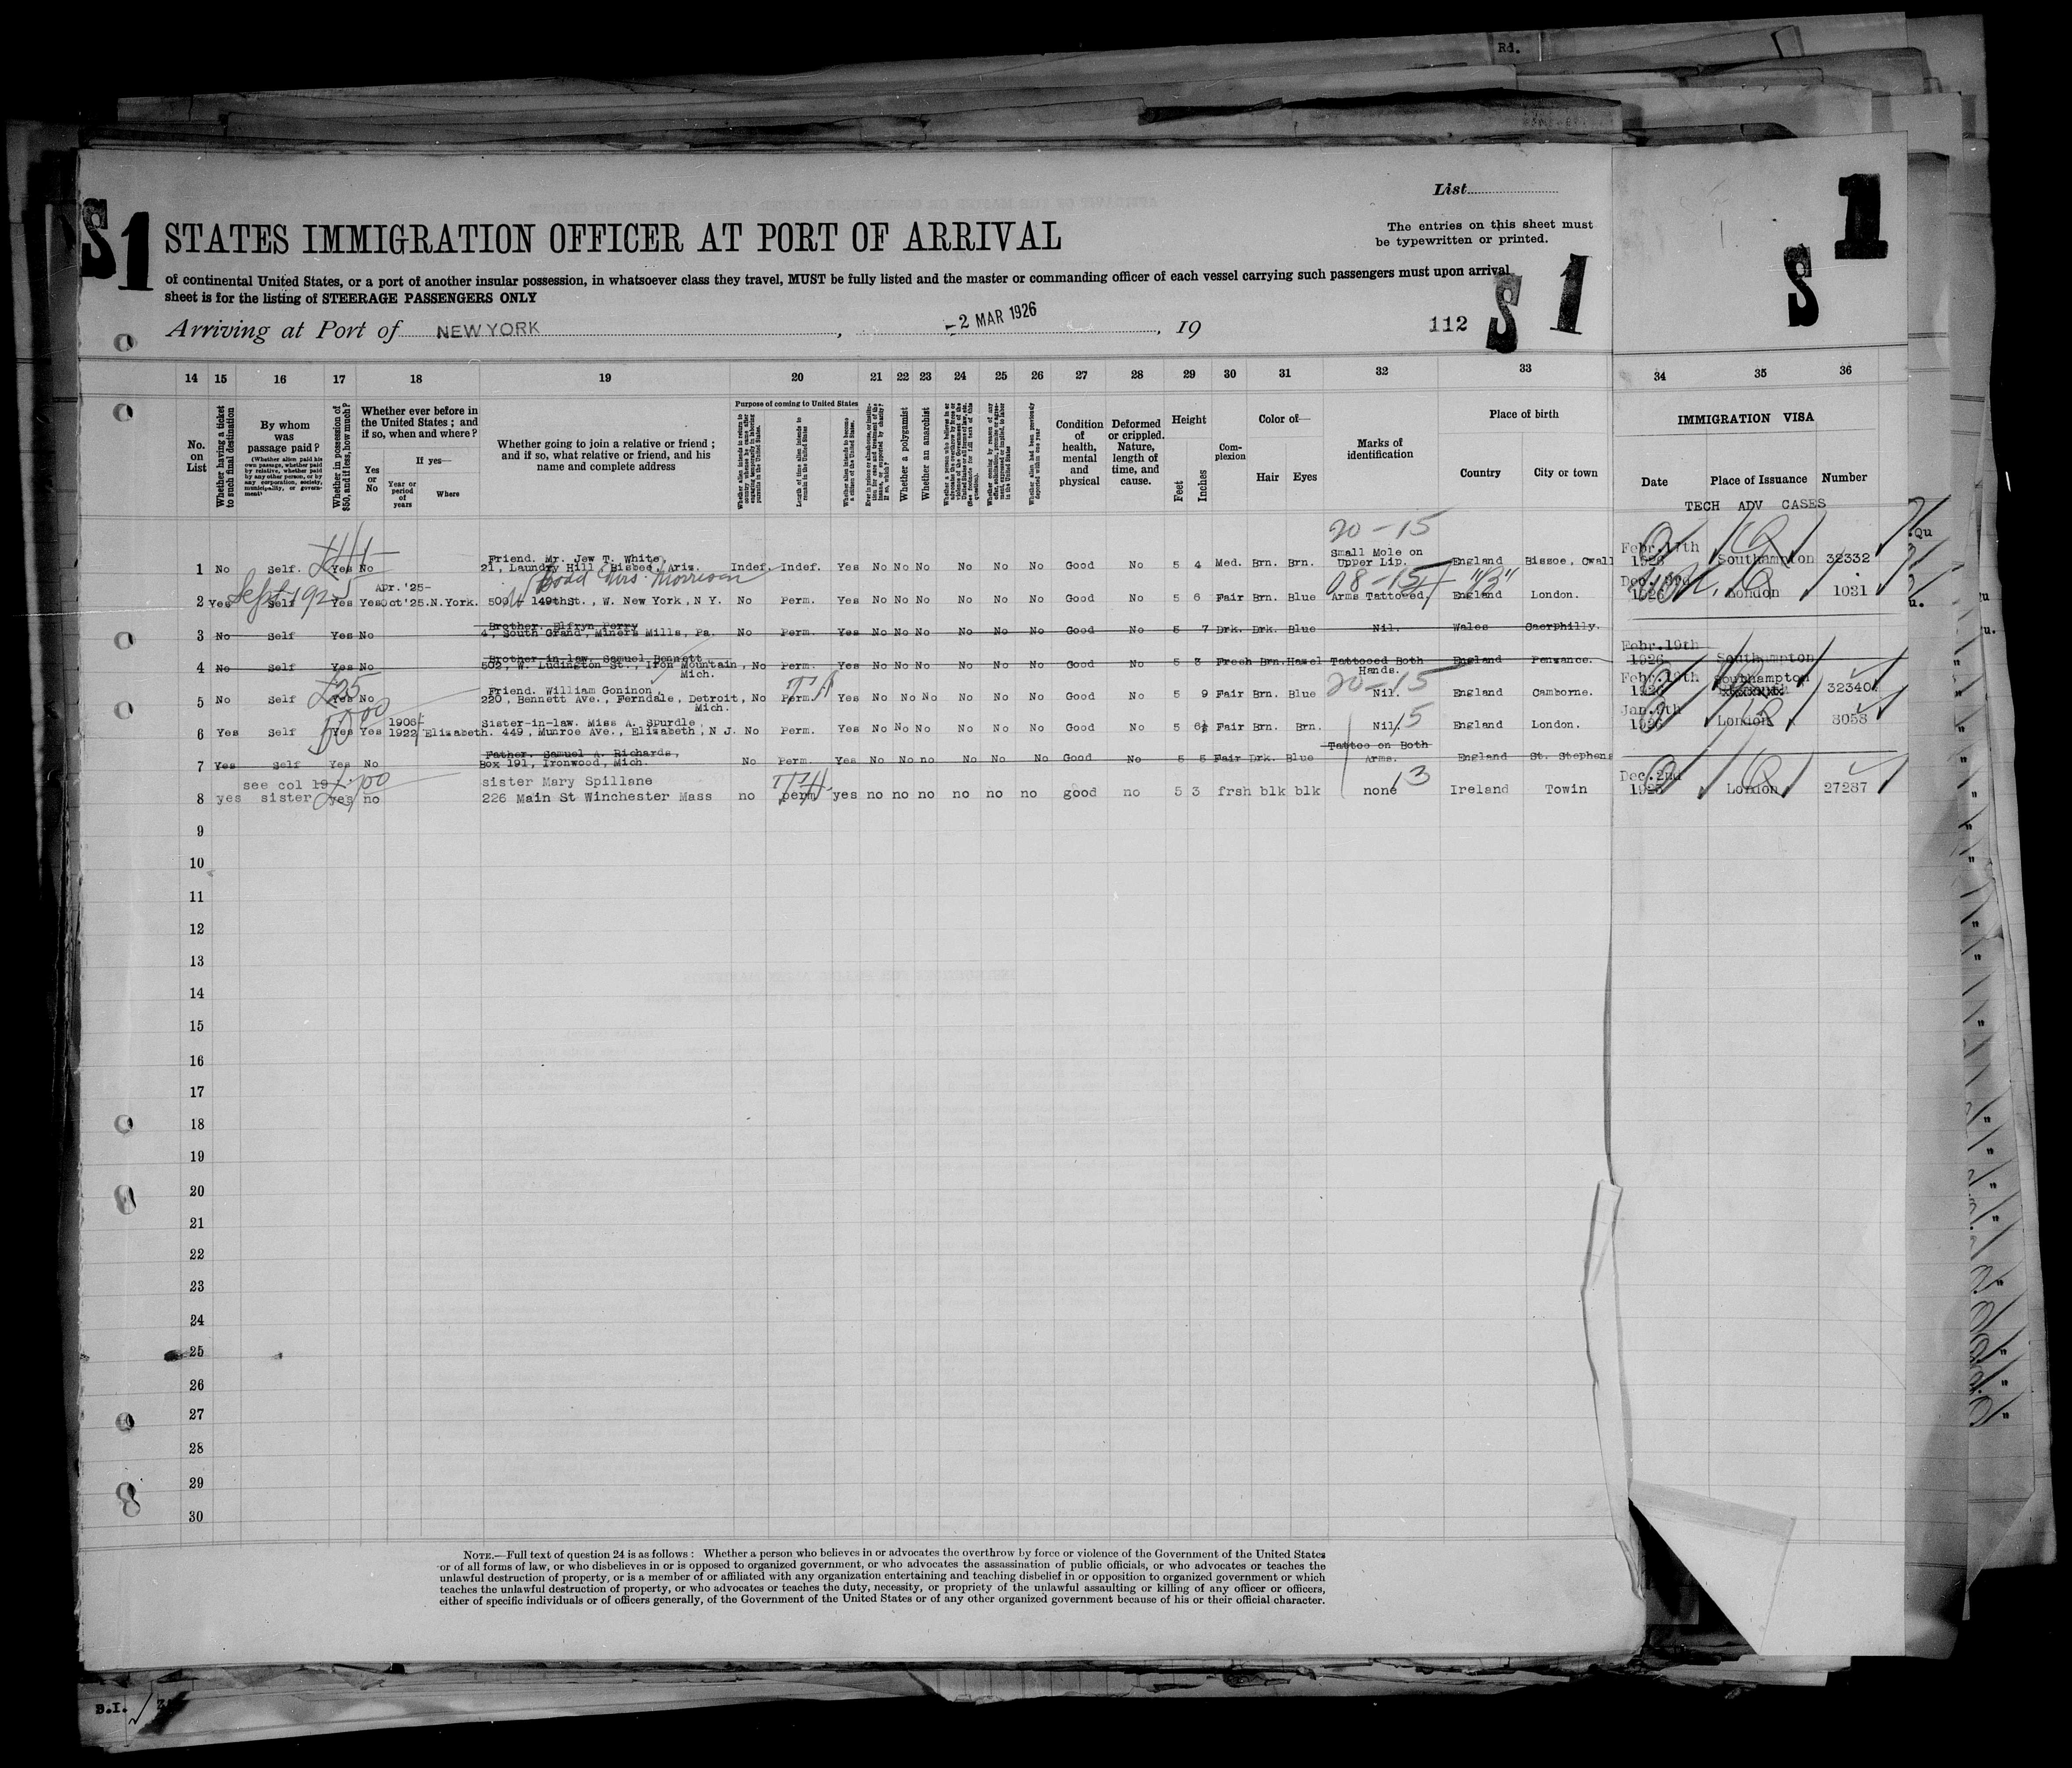 Rd.
List
S1
1
STATES IMMIGRATION OFFICER AT PORT OF ARRIVAL
The entries on this sheet must
be typewritten or printed.
of continental United States, or a port of another insular possession, in whatsoever class they travel, MUST be fully listed and the master or commanding officer of each vessel carrying such passengers must upon arrival
sheet is for the listing of STEERAGE PASSENGERS ONLY
S 1
S
Arriving at Port of NEW YORK , -2 MAR 1926 , 19
112
14 15 16 17 18 19 20 21 22 23 24 25 26 27 28 29 30 31 32 33 34 35 36
No. on List
Whether having a ticket to such final destination
By whom was passage paid?
(Whether alien paid his own passage, whether paid by relative, whether paid by any other person, or by any corporation, society, municipality, or government)
Whether in possession of $50, and if less, how much?
Whether ever before in the United States; and if so, when and where?
Yes or No
If yes—
Year or period of years
Where
Whether going to join a relative or friend; and if so, what relative or friend, and his name and complete address
Purpose of coming to United States
Length of time alien intends to remain in the United States
Whether alien intends to become a citizen of the United States.
Whether a polygamist
Whether an anarchist
Whether alien had been previously deported within one year
Condition of health, mental and physical
Deformed or crippled. Nature, length of time, and cause.
Height
Feet
Inches
Complexion
Color of—
Hair Eyes
Marks of identification
Place of birth
Country
City or town
IMMIGRATION VISA
Date
Place of Issuance
Number
TECH ADV CASES
20-15
Friend. Mr. Jew T. White, Small Mole on Febr. 17th
1 No Self. Yes No 21, Laundry Hill, Bisbee, Ariz. Indef. Indef. Yes No No No No No No Good No 5 4 Med. Brn. Brn. Upper Lip. England Bissoe, Cwall 1926 Southampton 32332
Sept 1925 Apr.'25- Mrs. Morrison 08-15 "B" Dec. 3rd
2 Yes Self Yes Yes Oct'25. N.York. 500 W 149th St., W. New York, N Y. No Perm. Yes No No No No No No Good No 5 6 Fair Brn. Blue Arms Tattooed, England London. 1926 London 1031
Brother. Elfryn Perry
3 No Self Yes No 4, South Grand, Miners Mills, Pa. No Perm. Yes No No No No No No Good No 5 7 Drk. Drk. Blue Nil. Wales Caerphilly.
Brother-in-law, Samuel Bennett Febr. 19th
4 No Self Yes No 502, W. Ludington St., Iron Mountain, No Perm. Yes No No No No No No Good No 5 3 Fresh Brn. Hazel Tattooed Both England Penzance. 1926 Southampton
Mich. Hands.
25 Friend. William Goninon, TH 20-15 Febr. 19th Southampton
5 No Self Yes No 220, Bennett Ave., Ferndale, Detroit, No Perm. Yes No No No No No No Good No 5 9 Fair Brn. Blue Nil. England Camborne. 1926 32340
Mich.
1906- Sister-in-law. Miss A. Spurdle, Jan. 9th
6 Yes Self Yes Yes 1922 Elizabeth. 449, Munroe Ave., Elizabeth, N J. No Perm. Yes No No No No No No Good No 5 6½ Fair Brn. Brn. Nil. 5 England London. 1926 London 3058
Father, Samuel A. Richards, Tattoo on Both
7 Yes Self Yes No Box 191, Ironwood, Mich. No Perm. Yes No No no No No No Good No 5 5 Fair Drk. Blue Arms. England St. Stephens
see col 19 sister Mary Spillane TH 13 Dec. 2nd
8 yes sister yes no 226 Main St Winchester Mass no perm yes no no no no no no good no 5 3 frsh blk blk none Ireland Towin 1925 London 27287
9
10
11
12
13
14
15
16
17
18
19
20
21
22
23
24
25
26
27
28
29
30
NOTE.—Full text of question 24 is as follows: Whether a person who believes in or advocates the overthrow by force or violence of the Government of the United States
or of all forms of law, or who disbelieves in or is opposed to organized government, or who advocates the assassination of public officials, or who advocates or teaches the
unlawful destruction of property, or is a member of or affiliated with any organization entertaining and teaching disbelief in or opposition to organized government or which
teaches the unlawful destruction of property, or who advocates or teaches the duty, necessity, or propriety of the unlawful assaulting or killing of any officer or officers,
either of specific individuals or of officers generally, of the Government of the United States or of any other organized government because of his or their official character.